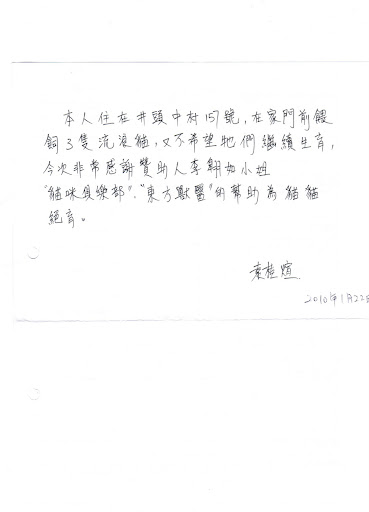 本人住在井頭中村157號，在家門前餵
飼3隻流浪貓，又不希望牠們繼續生育，
今次非常感謝贊助人李翱如小姐
"貓咪俱樂部"、"東方獸醫"的幫助為貓貓
絕育。
袁桂煊
2010年1月22日